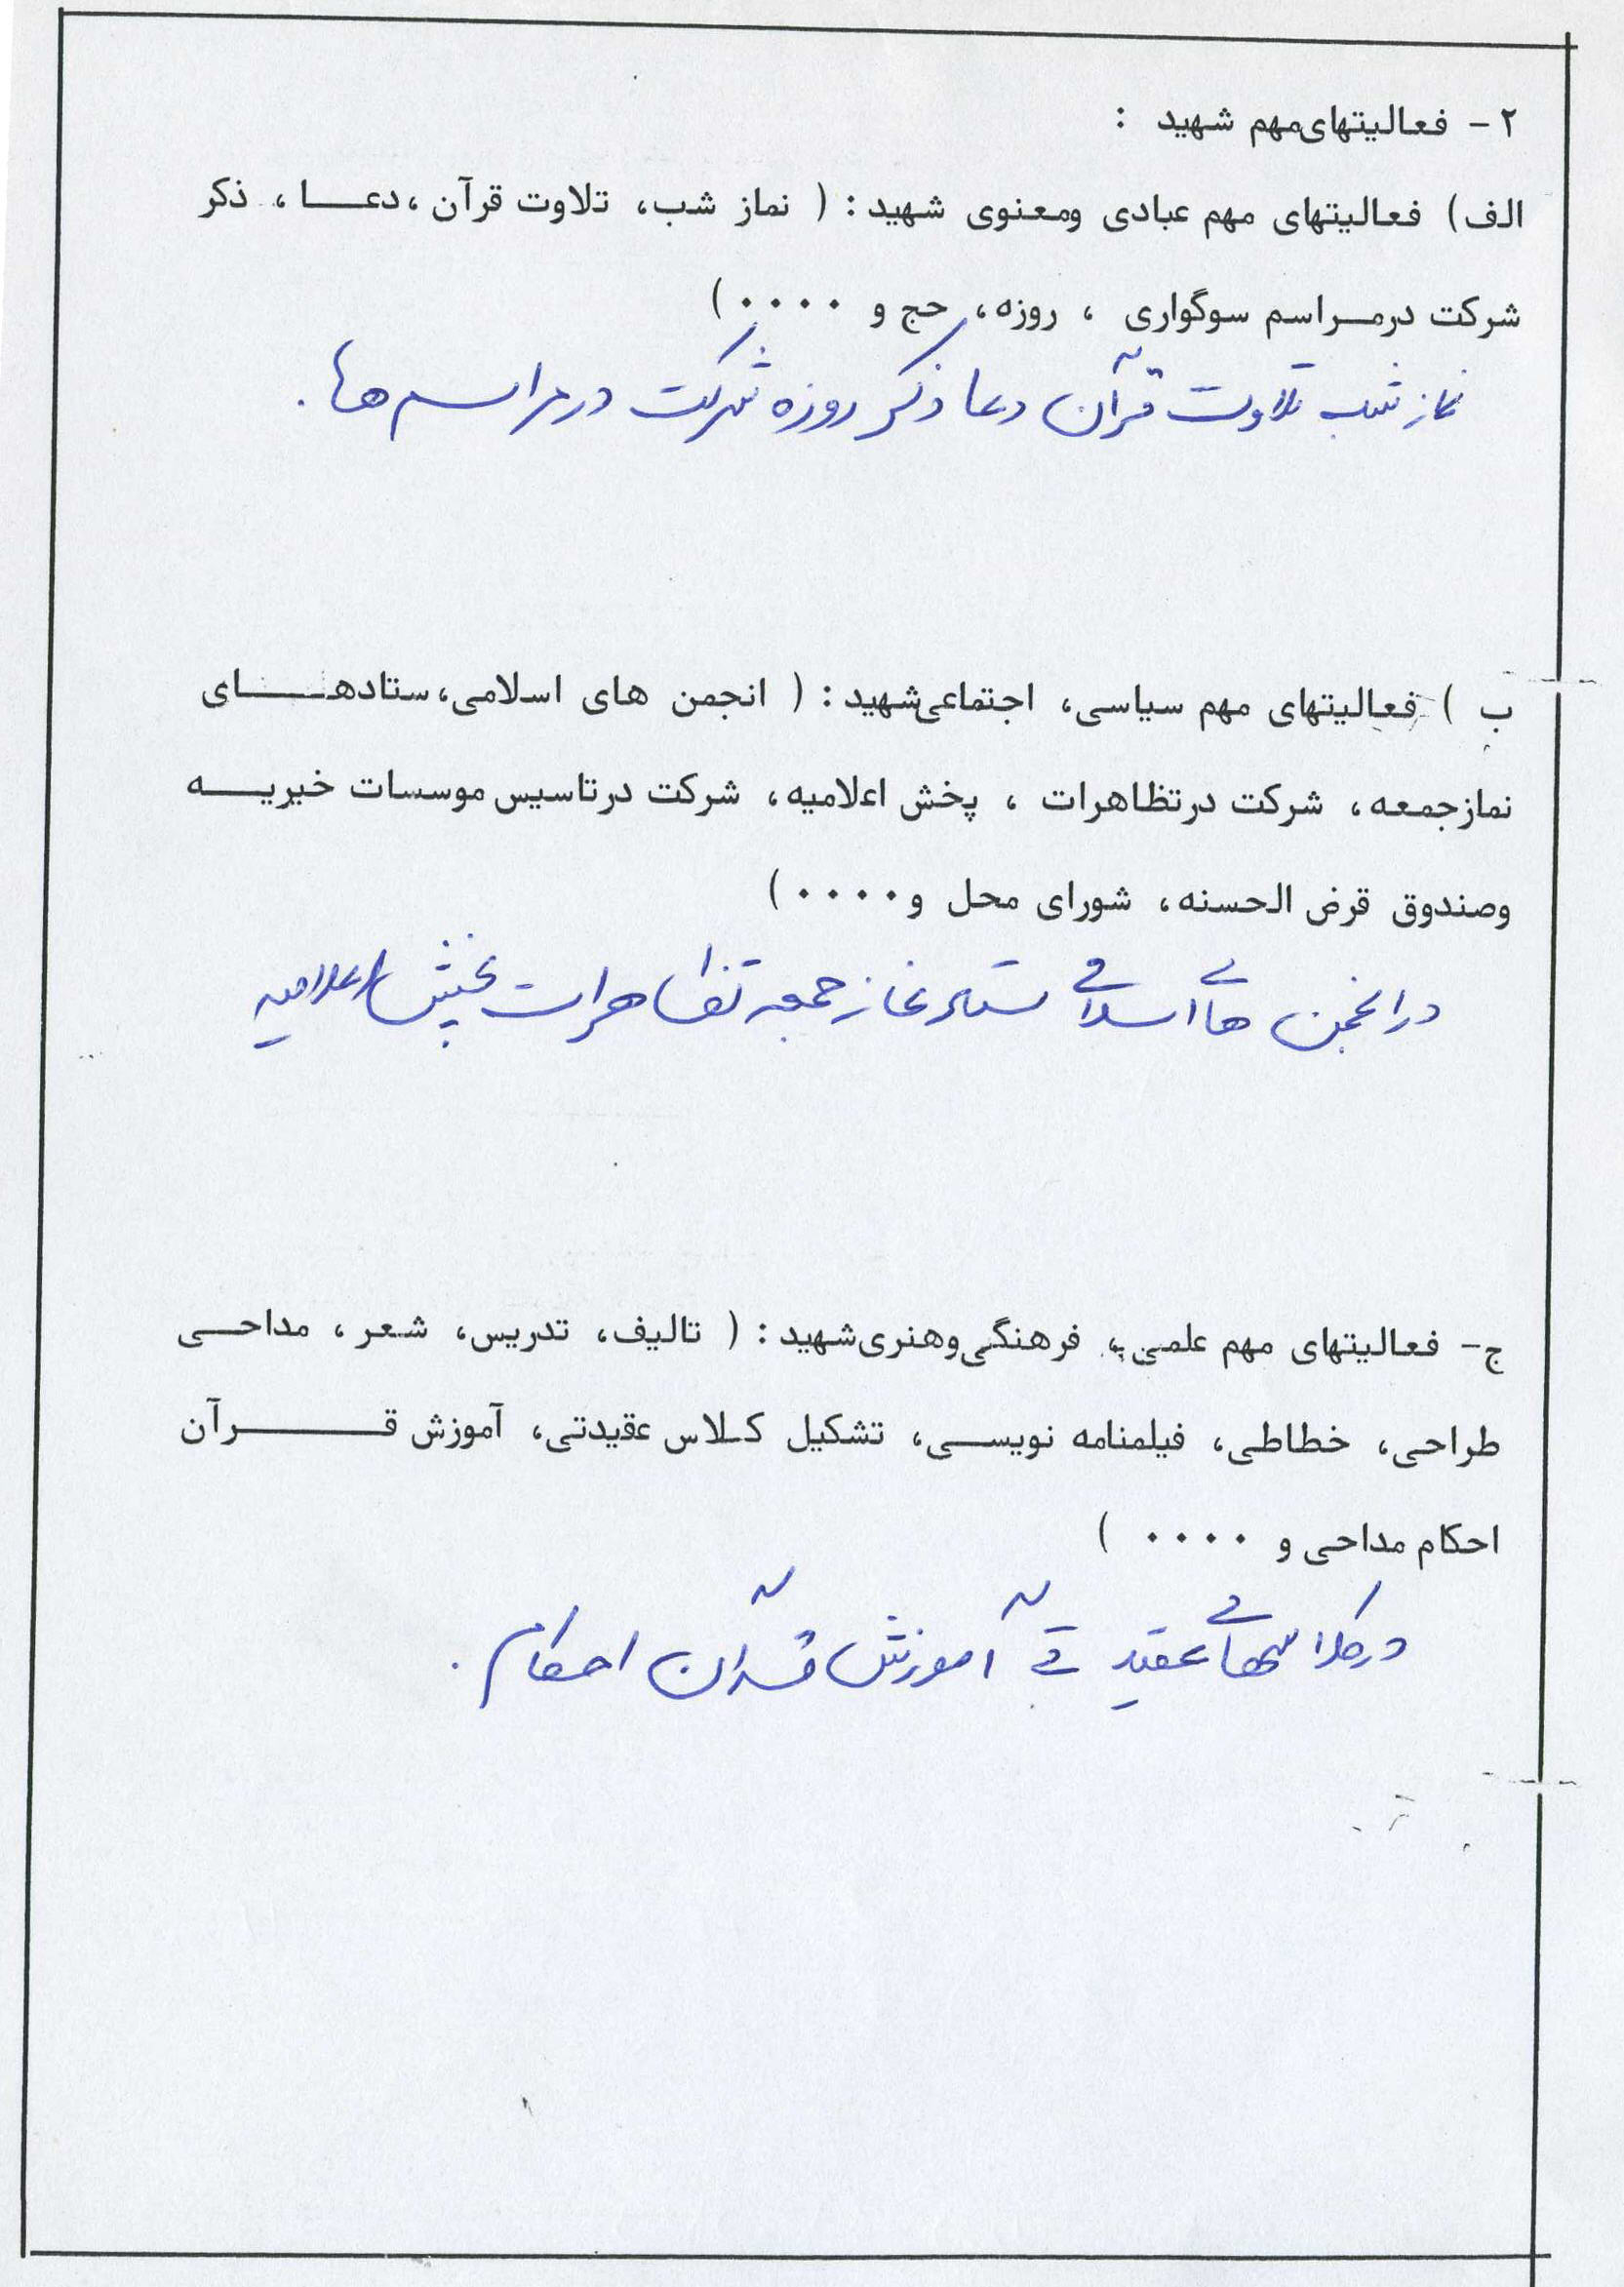 ۲ - فعالیتهای مهم شهید :
الف ) فعالیتهای مهم عبادی ومعنوی شهید : ( نماز شب، تلاوت قرآن ، دعا ، ذکر
شرکت درمراسم سوگواری ، روزه، حج و ۰۰۰۰ )
نماز شب تلاوت قرآن دعا ذکر روزه شرکت در مراسم ها .
ب ) فعالیتهای مهم سیاسی، اجتماعی شهید : ( انجمن های اسلامی، ستادهای
نمازجمعه ، شرکت درتظاهرات ، پخش اعلامیه ، شرکت درتاسیس موسسات خیریه
وصندوق قرض الحسنه ، شورای محل و ۰۰۰۰ )
در انجمن های اسلامی ستاد نماز جمعه تظاهرات پخش اعلامیه
ج - فعالیتهای مهم علمی ، فرهنگی وهنری شهید : ( تالیف، تدریس، شعر ، مداحی
طراحی، خطاطی، فیلمنامه نویسی، تشکیل کلاس عقیدتی، آموزش قرآن
احکام مداحی و ۰۰۰۰ )
در کلاسهای عقیدتی آموزش قرآن احکام .